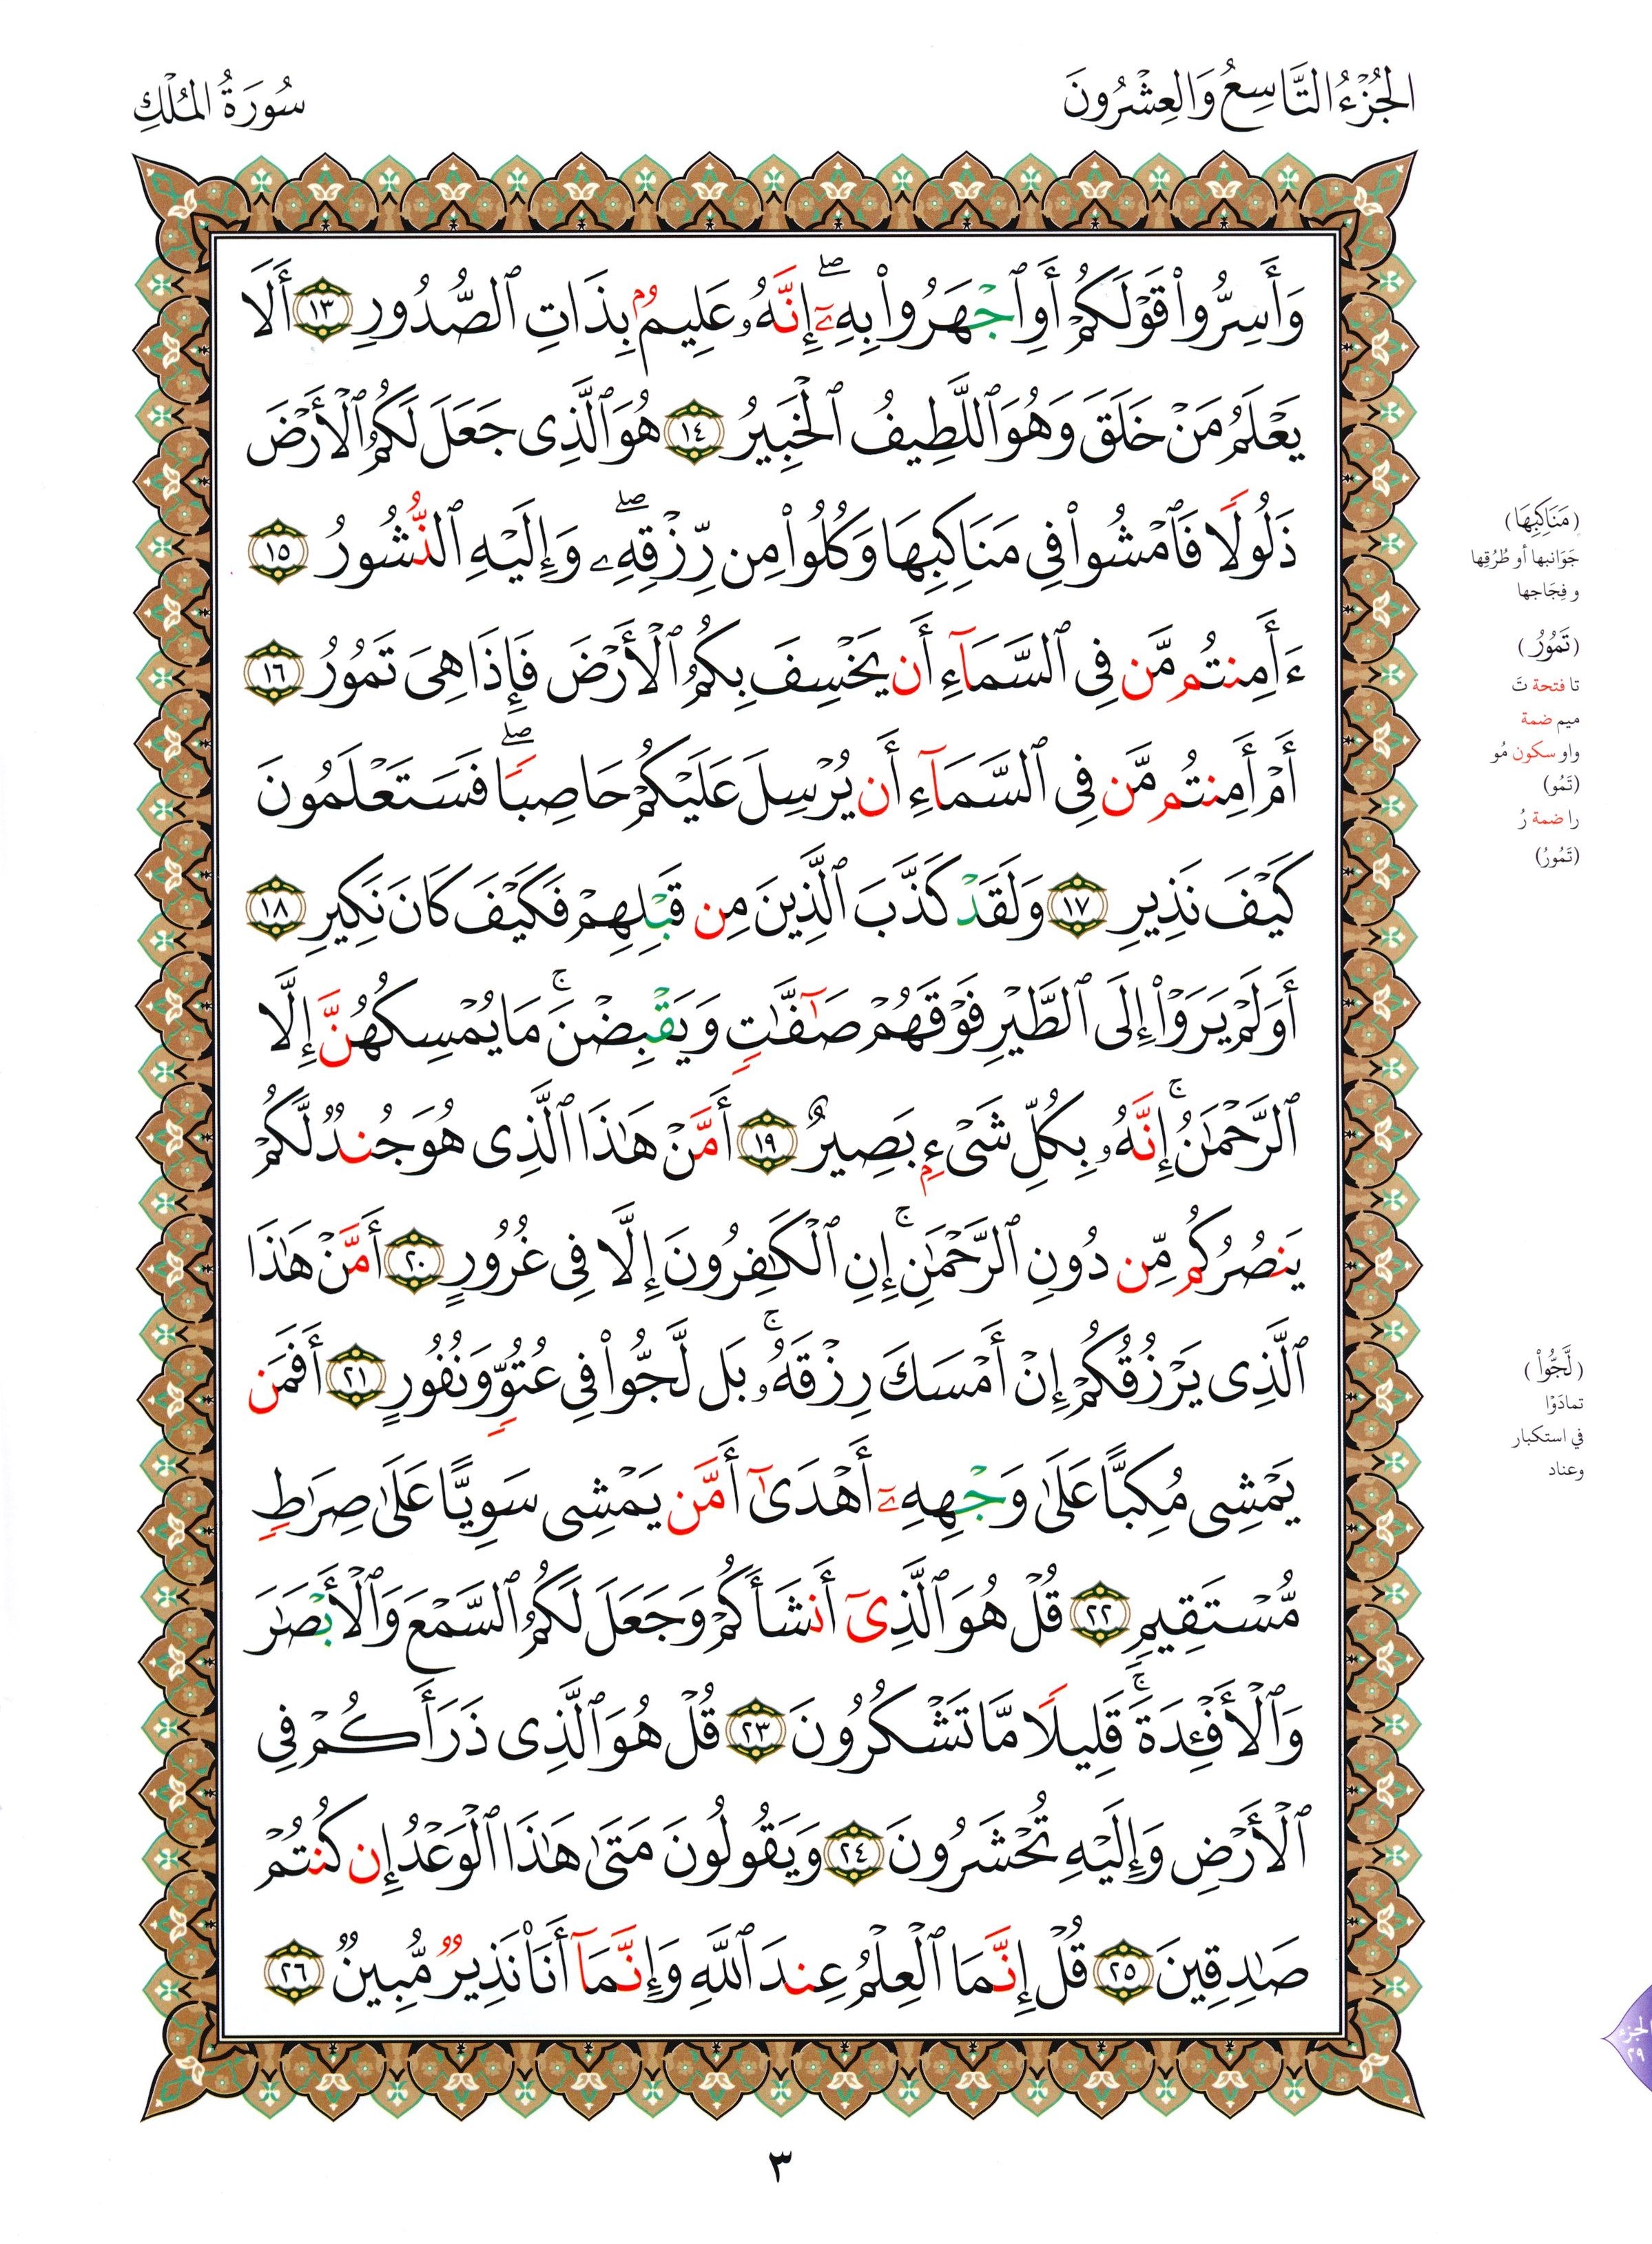 الجُزْءُ التَّاسِعُ وَالعِشْرُونَ
سُورَةُ المُلْكِ
وَأَسِرُّوا۟ قَوْلَكُمْ أَوِ ٱجْهَرُوا۟ بِهِۦٓ ۖ إِنَّهُۥ عَلِيمٌۢ بِذَاتِ ٱلصُّدُورِ ١٣ أَلَا
يَعْلَمُ مَنْ خَلَقَ وَهُوَ ٱللَّطِيفُ ٱلْخَبِيرُ ١٤ هُوَ ٱلَّذِى جَعَلَ لَكُمُ ٱلْأَرْضَ
ذَلُولًا فَٱمْشُوا۟ فِى مَنَاكِبِهَا وَكُلُوا۟ مِن رِّزْقِهِۦ ۖ وَإِلَيْهِ ٱلنُّشُورُ ١٥
ءَأَمِنتُم مَّن فِى ٱلسَّمَآءِ أَن يَخْسِفَ بِكُمُ ٱلْأَرْضَ فَإِذَا هِىَ تَمُورُ ١٦
أَمْ أَمِنتُم مَّن فِى ٱلسَّمَآءِ أَن يُرْسِلَ عَلَيْكُمْ حَاصِبًا ۖ فَسَتَعْلَمُونَ
كَيْفَ نَذِيرِ ١٧ وَلَقَدْ كَذَّبَ ٱلَّذِينَ مِن قَبْلِهِمْ فَكَيْفَ كَانَ نَكِيرِ ١٨
أَوَلَمْ يَرَوْا۟ إِلَى ٱلطَّيْرِ فَوْقَهُمْ صَٰٓفَّٰتٍ وَيَقْبِضْنَ ۚ مَا يُمْسِكُهُنَّ إِلَّا
ٱلرَّحْمَٰنُ ۚ إِنَّهُۥ بِكُلِّ شَىْءٍۭ بَصِيرٌ ١٩ أَمَّنْ هَٰذَا ٱلَّذِى هُوَ جُندٌ لَّكُمْ
يَنصُرُكُم مِّن دُونِ ٱلرَّحْمَٰنِ ۚ إِنِ ٱلْكَٰفِرُونَ إِلَّا فِى غُرُورٍ ٢٠ أَمَّنْ هَٰذَا
ٱلَّذِى يَرْزُقُكُمْ إِنْ أَمْسَكَ رِزْقَهُۥ ۚ بَل لَّجُّوا۟ فِى عُتُوٍّ وَنُفُورٍ ٢١ أَفَمَن
يَمْشِى مُكِبًّا عَلَىٰ وَجْهِهِۦٓ أَهْدَىٰٓ أَمَّن يَمْشِى سَوِيًّا عَلَىٰ صِرَٰطٍ
مُّسْتَقِيمٍ ٢٢ قُلْ هُوَ ٱلَّذِىٓ أَنشَأَكُمْ وَجَعَلَ لَكُمُ ٱلسَّمْعَ وَٱلْأَبْصَٰرَ
وَٱلْأَفْـِٔدَةَ ۖ قَلِيلًا مَّا تَشْكُرُونَ ٢٣ قُلْ هُوَ ٱلَّذِى ذَرَأَكُمْ فِى
ٱلْأَرْضِ وَإِلَيْهِ تُحْشَرُونَ ٢٤ وَيَقُولُونَ مَتَىٰ هَٰذَا ٱلْوَعْدُ إِن كُنتُمْ
صَٰدِقِينَ ٢٥ قُلْ إِنَّمَا ٱلْعِلْمُ عِندَ ٱللَّهِ وَإِنَّمَآ أَنَا۠ نَذِيرٌ مُّبِينٌ ٢٦
(مَنَاكِبِهَا)
جَوَانبها أو طُرُقِها
و فِجَاجها
(تَمُورُ)
تا فتحة تَ
ميم ضمة
واو سكون مُو
(تَمُو)
را ضمة رُ
(تَمُورُ)
(لَّجُّوا۟)
تمادَوْا
في استكبار
وعناد
الجزء
٢٩
٣